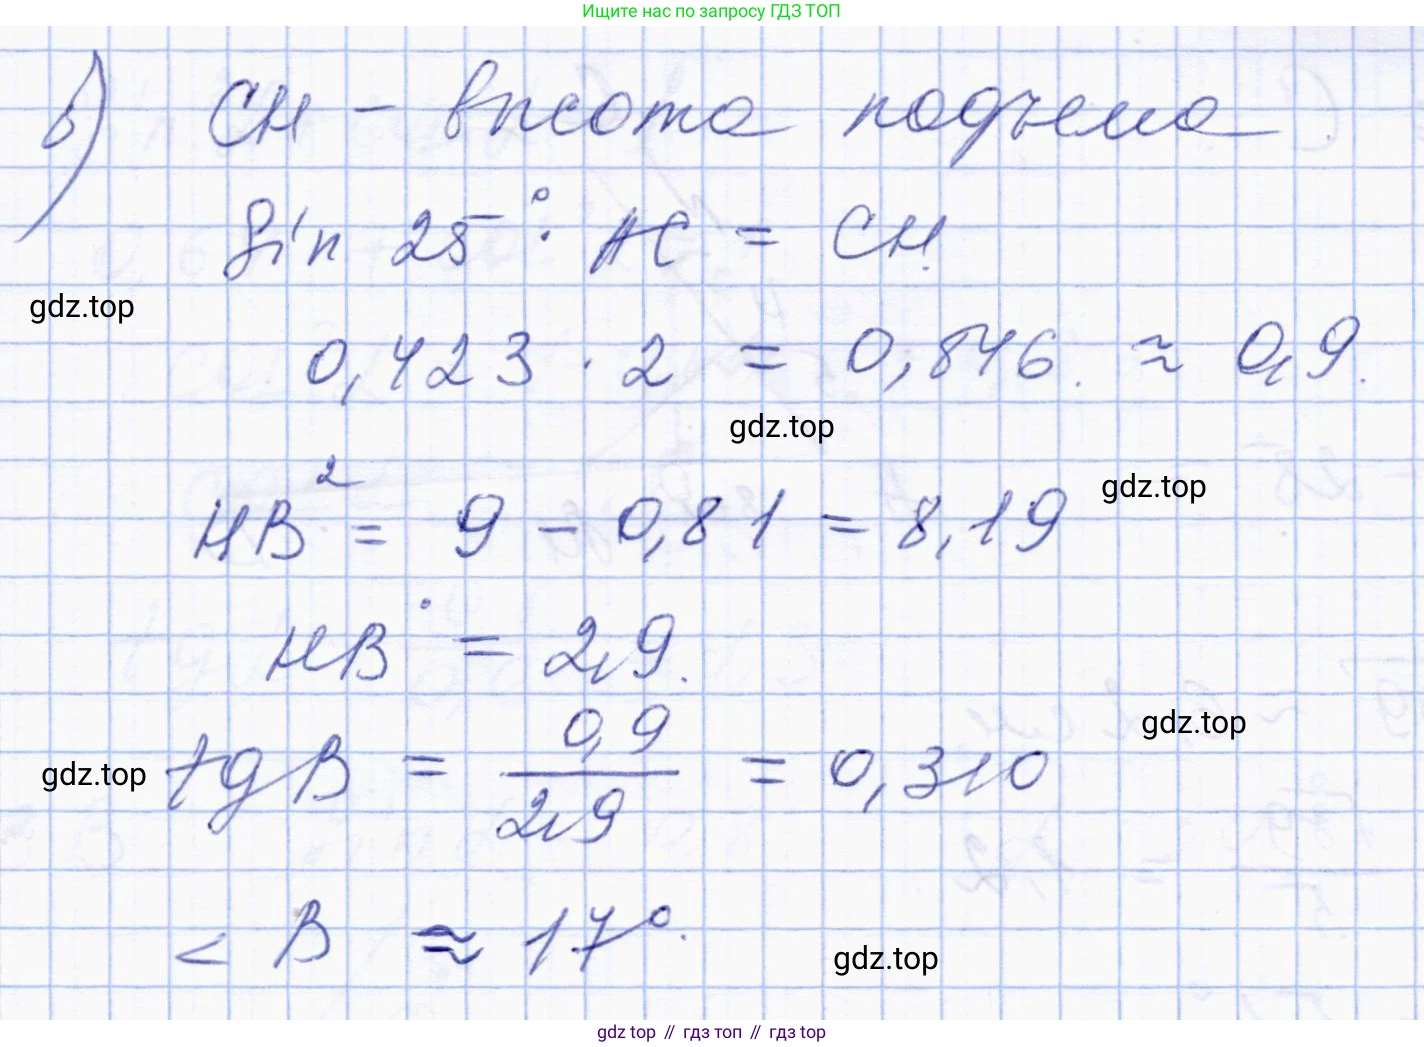 Ищите нас по запросу ГДЗ ТОП
б) CH – высота подъема
Sin 25° · AC = CH.
gdz.top
0,423 · 2 = 0,846. ≈ 0,9.
gdz.top
gdz.top
HB² = 9 – 0,81 = 8,19
HB = 2,9.
gdz.top
gdz.top
tgB = 0,9/2,9 = 0,310
< B ≈ 17°.
gdz.top
gdz top // гдз топ // гдз top